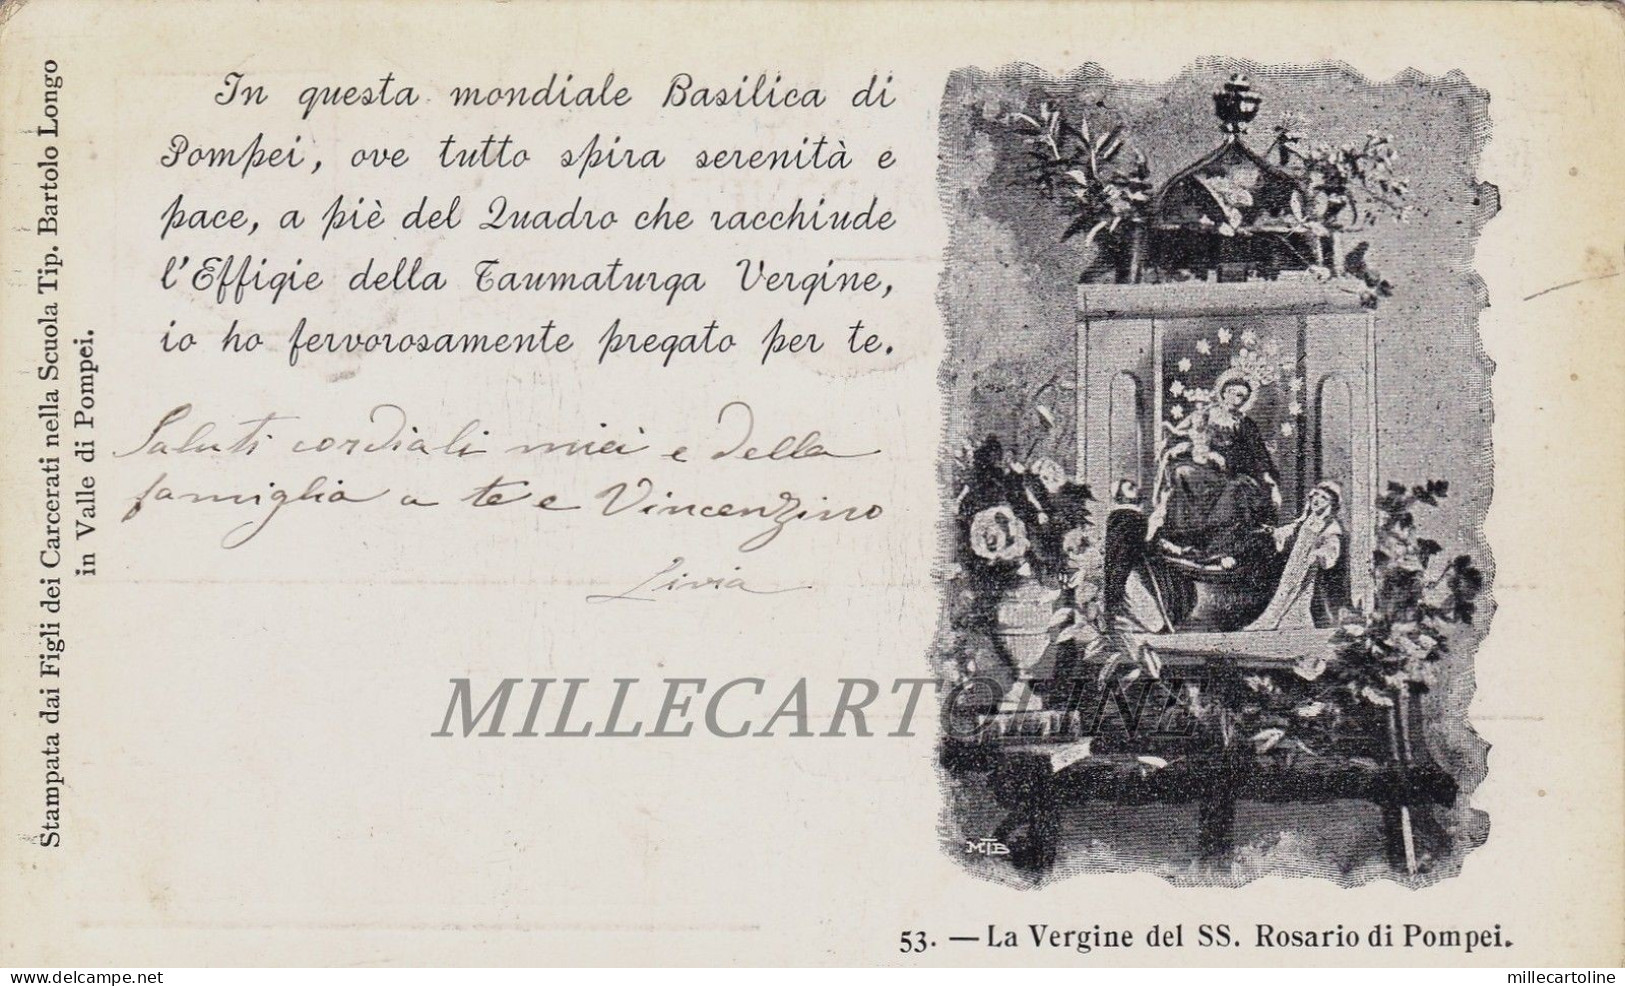 Stampata dai Figli dei Carcerati nella Scuola Tip. Bartolo Longo
in Valle di Pompei.
In questa mondiale Basilica di
Pompei, ove tutto spira serenità e
pace, a piè del Quadro che racchiude
l'Effigie della Taumaturga Vergine,
io ho fervorosamente pregato per te.
Saluti cordiali miei e della
famiglia a te e Vincenzino
Livia
MILLECARTOLINE
MTB
53. — La Vergine del SS. Rosario di Pompei.
delcampe.net
millecartoline